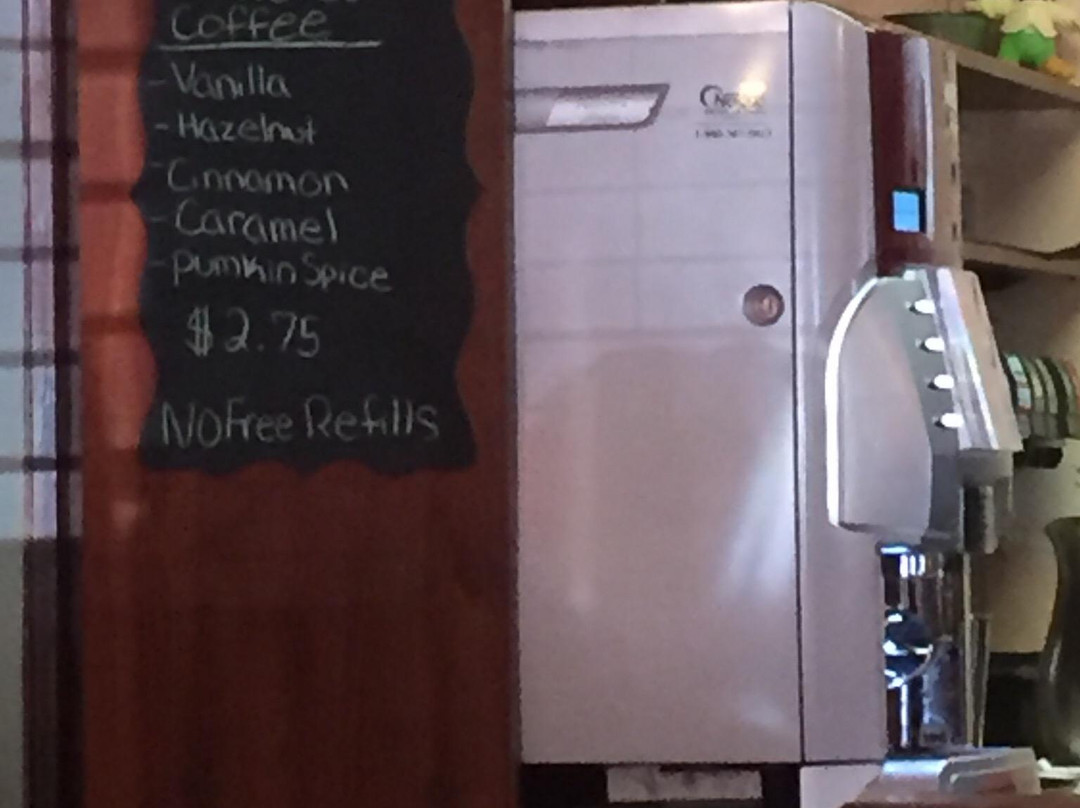 Coffee
- Vanilla
- Hazelnut
- Cinnamon
- Caramel
- pumkin Spice
$2.75
No Free Refills